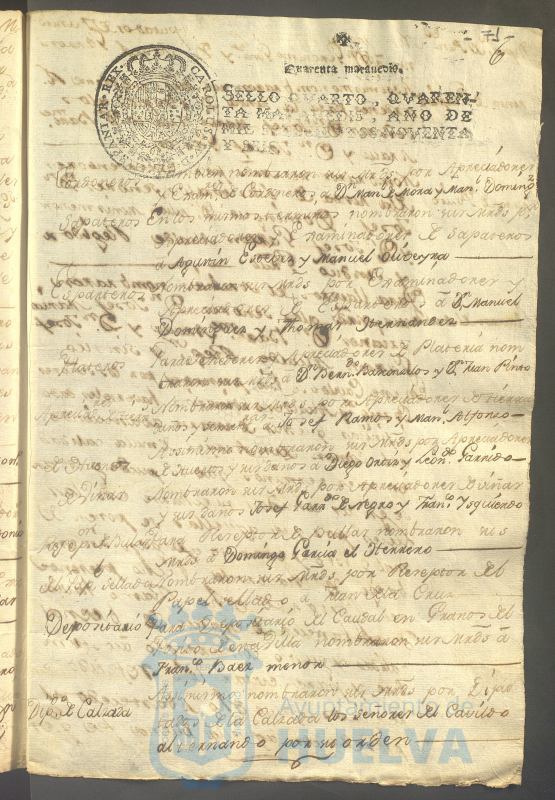 71
6
Quarenta maravedis.
SELLO QUARTO, QVAREN-
TA MARAVEDIS, AÑO DE
MIL NOVENTA
CAROLUS REX
tambien nombraron sus Mrds por Apreciadores
y Exam.s Cordoneros, a Dn Man.l de Mora y Man.l Doming.z
Zapateros En los mismos terminos nombraron sus Mrds por
Apreciadores y Examinadores de Zapateros
a Agustin Estebez y Manuel Oliveyra
Esparteros Nombraron sus Mrds por Examinadores y
Apreciadores de Esparteros a Dn Manuel
Dominguez y Thomas Hernandez
Plateros Para Apreciadores de Plateria nom
braron sus Mrds a Dn Bern.do y Dn Juan Pinto
Nombraron sus Mrds por Apreciadores de tierras
a Josef Ramos y Man.l Alfonso
Assimismo nombraron sus Mrds por Apreciadores
de Huertas de Huertas y sus daños a Diego Ortiz y Leon.do Garrido
de Viñas Nombraron sus Mrds por Apreciadores de Viñas
y sus daños Josef Garz.a de Negro y Fran.co Ysquierdo
Rezep.or Bulas Para Rezeptor de Bullas nombraron sus
Mrds a Domingo Garcia el Herrero
del Pap.l sellado Nombraron sus Mrds por Rezeptor del
Papel sellado a Juan de la Cruz
Depositario Para Depositario del Caudal en Granos del
Posito de esta Villa nombraron sus Mrds a
Fran.co Baez menor
Dip.do de Calzada Assimismo nombraron sus Mrds por Dipu
tados de la Calzada los señores del Cavildo
alternando por su orden
Ayuntamiento de
HUELVA